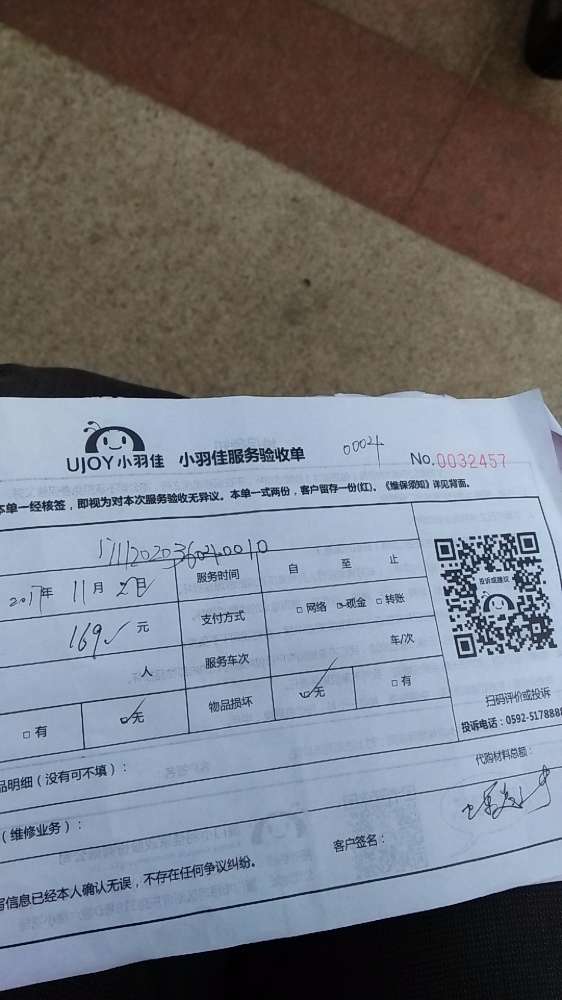 UJOY小羽佳 小羽佳服务验收单 00024 No.0032457
本单一经核签，即视为对本次服务验收无异议。本单一式两份，客户留存一份(红)。《维保须知》详见背面。
服务时间 自 至 止
2017年 11月 日
支付方式 □网络 ☑现金 □转账
169 元
人 服务车次 车/次
□有 ☑无 物品损坏 ☑无 □有
投诉或建议
扫码评价或投诉
投诉电话：0592-5178888
品明细（没有可不填）： 代购材料总额：
（维修业务）：
客户签名：
写信息已经本人确认无误，不存在任何争议纠纷。